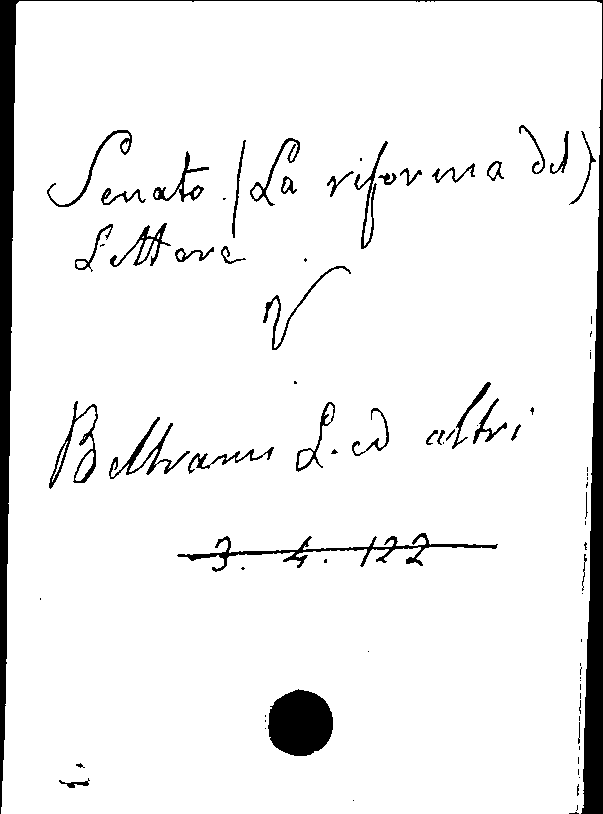 Senato (La riforma del)
Lettere
V
Beltrami L. ed altri
3. 4. 122